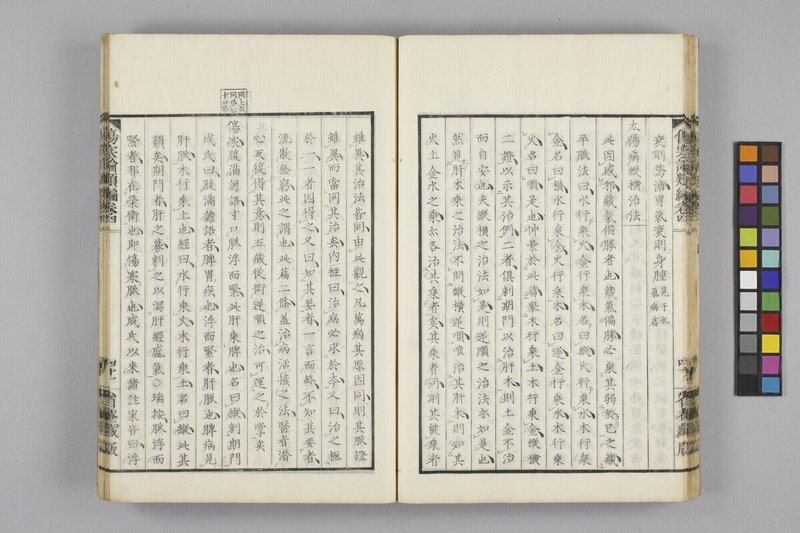 衰則驚濡胃氣衰則身腫
太陽病縱横治法
此因感邪藏氣偏勝者也藏氣偏勝必乘其弱於己之藏
平脈法曰水行乘火金行乘木名曰縱火行乘水木行乘
金名曰横水行乘金火行乘木名曰逆金行乘水木行乘
火名曰順是也仲景於此篇擧木行乘土木行乘金縱横
二證以示其治例二者俱刺期門以治肝木則土金不治
而自安也夫縱横之治法如是則逆順之治法亦如是也
然見肝木乘之治法不問縱横逆順惟治其肝木則知其
火土金水之乘亦各治其乘者矣其乘者同則其被乘者
雖異其治法皆同由此觀之凡萬病其原因同則其脈證
雖異而當同其治矣内經曰治病必求於本又曰治之極
於一一者因得之又曰知其要者一言而終不知其要者
流散無窮此之謂也此篇二條蓋治病活機之法醫者潛
心反復得其意則五藏從衡逆順之治可運之於掌矣
傷寒腹滿譫語寸口脈浮而緊此肝乘脾也名曰縱刺期門
成氏曰腹滿譫語者脾胃疾也浮而緊者肝脈也脾病見
肝脈木行乘土也經曰水行乘火木行乘土名曰縱此其
類矣期門者肝之募刺之以瀉肝經盛氣○瑞按脈浮而
緊者邪在榮衛也即傷寒脈也成氏以來諸註家皆曰浮
傷寒論類編卷四